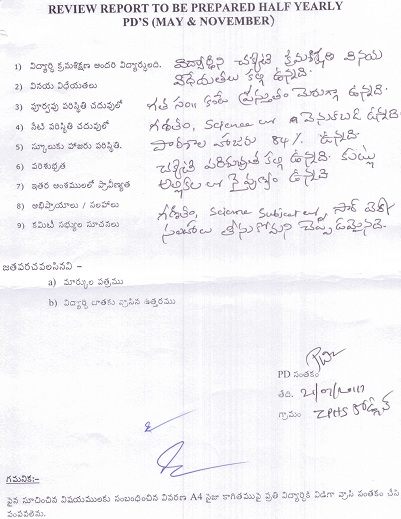 REVIEW REPORT TO BE PREPARED HALF YEARLY
PD'S (MAY & NOVEMBER)
1) విద్యార్థి క్రమశిక్షణ అందరి విద్యార్థులది. విద్యార్థిని చక్కటి క్రమశిక్షణ వినయ
2) వినయ విధేయతలు విధేయతలు కల్గి ఉన్నది.
3) పూర్వపు పరిస్థితి చదువులో గత సం॥ కంటే ప్రస్తుతం మెరుగ్గా ఉన్నది.
4) నేటి పరిస్థితి చదువులో గణితం, science లో వెనుకబడి ఉన్నది
5) స్కూలుకు హాజరు పరిస్థితి. పాఠశాల హాజరు 84% ఉన్నది
6) పరిశుభ్రత చక్కటి పరిశుభ్రత కల్గి ఉన్నది. కుట్లు
7) ఇతర అంశములలో ప్రావీణ్యత అల్లికల లో నైపుణ్యం ఉన్నది
8) అభిప్రాయాలు / సలహాలు గణితం, science subject లో
9) కమిటి సభ్యుల సూచనలు సలహాలు తీసుకోమని చెప్పడమైనది.
జతపరచవలసినవి :-
a) మార్కుల పత్రము
b) విద్యార్థి దాతకు వ్రాసిన ఉత్తరము
PD సంతకం
తేది. 21/07/2017
గ్రామం ZPHS
గమనిక:-
పైన సూచించిన విషయములకు సంబంధించిన వివరణ A4 సైజు కాగితముపై ప్రతి విద్యార్థికి విడిగా వ్రాసి సంతకం చేసి
పంపవలెను.